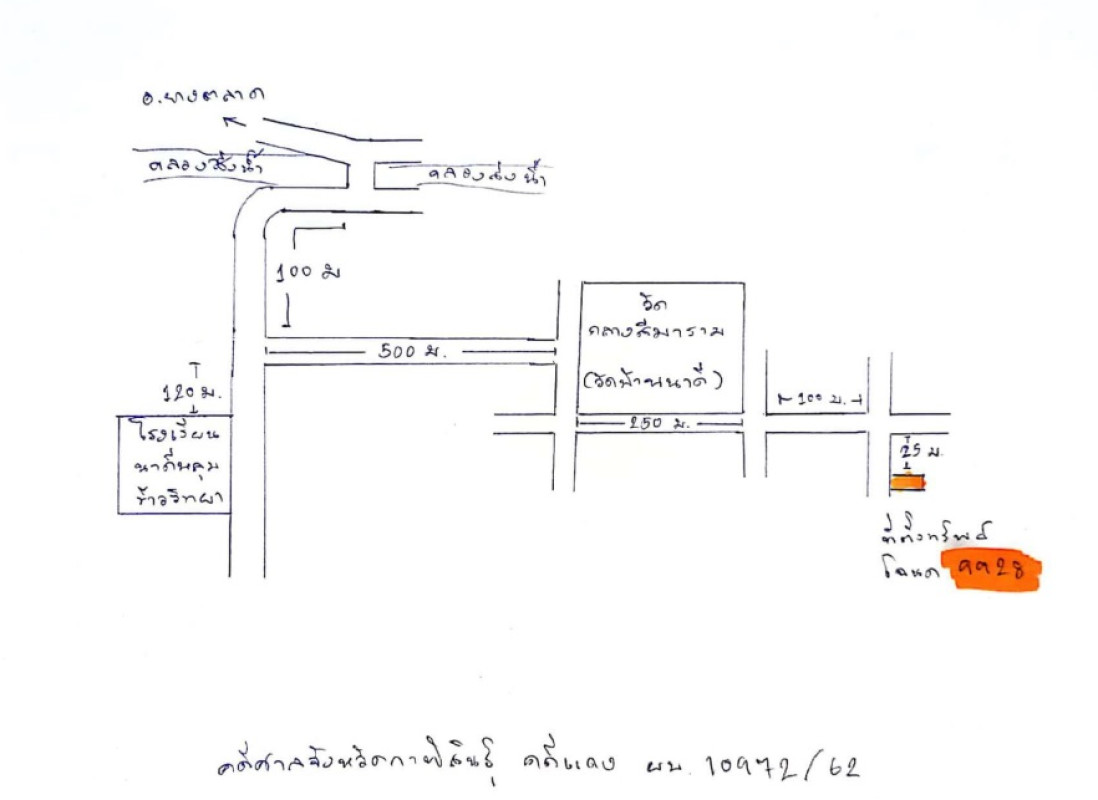 อ.ยางตลาด
คลองส่งน้ำ
คลองส่งน้ำ
100 ม
500 ม.
120 ม.
โรงเรียน
นาดีหลุม
ข้าววิทยา
วัด
กลางสีมาราม
(วัดบ้านนาดี)
250 ม.
100 ม.
25 ม.
ที่ตั้งทรัพย์
โฉนด 9928
คดีศาลจังหวัดกาฬสินธุ์ คดีแดง ผบ. 10972/62